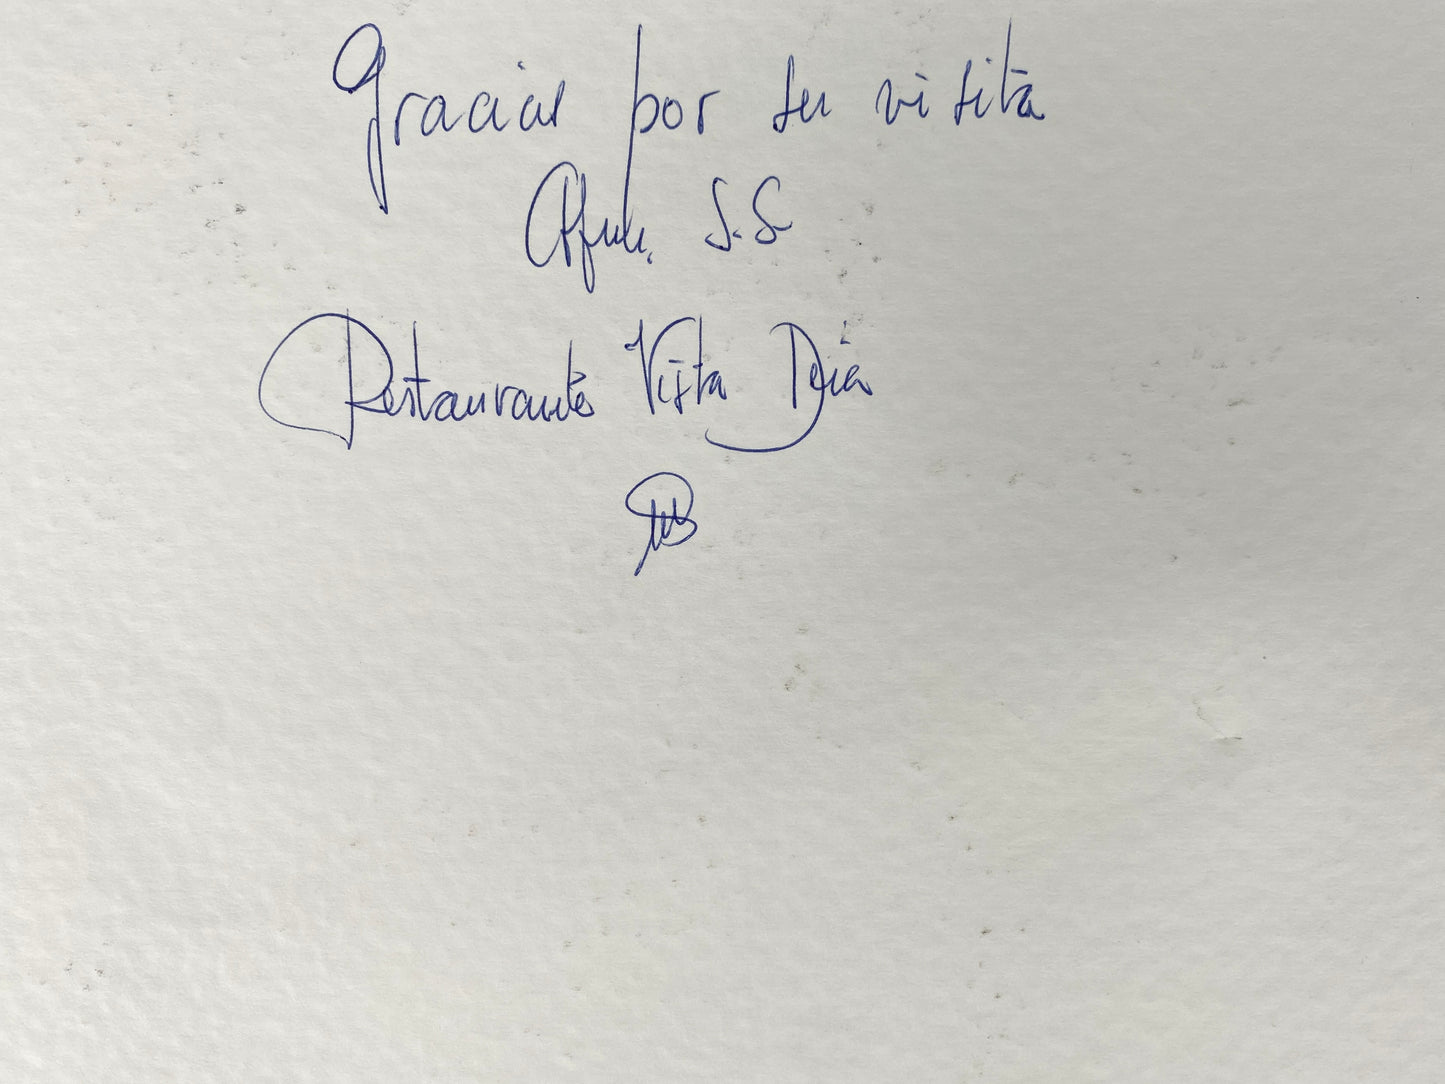 Gracias por tu visita
S.S
Restaurante Vista Deia